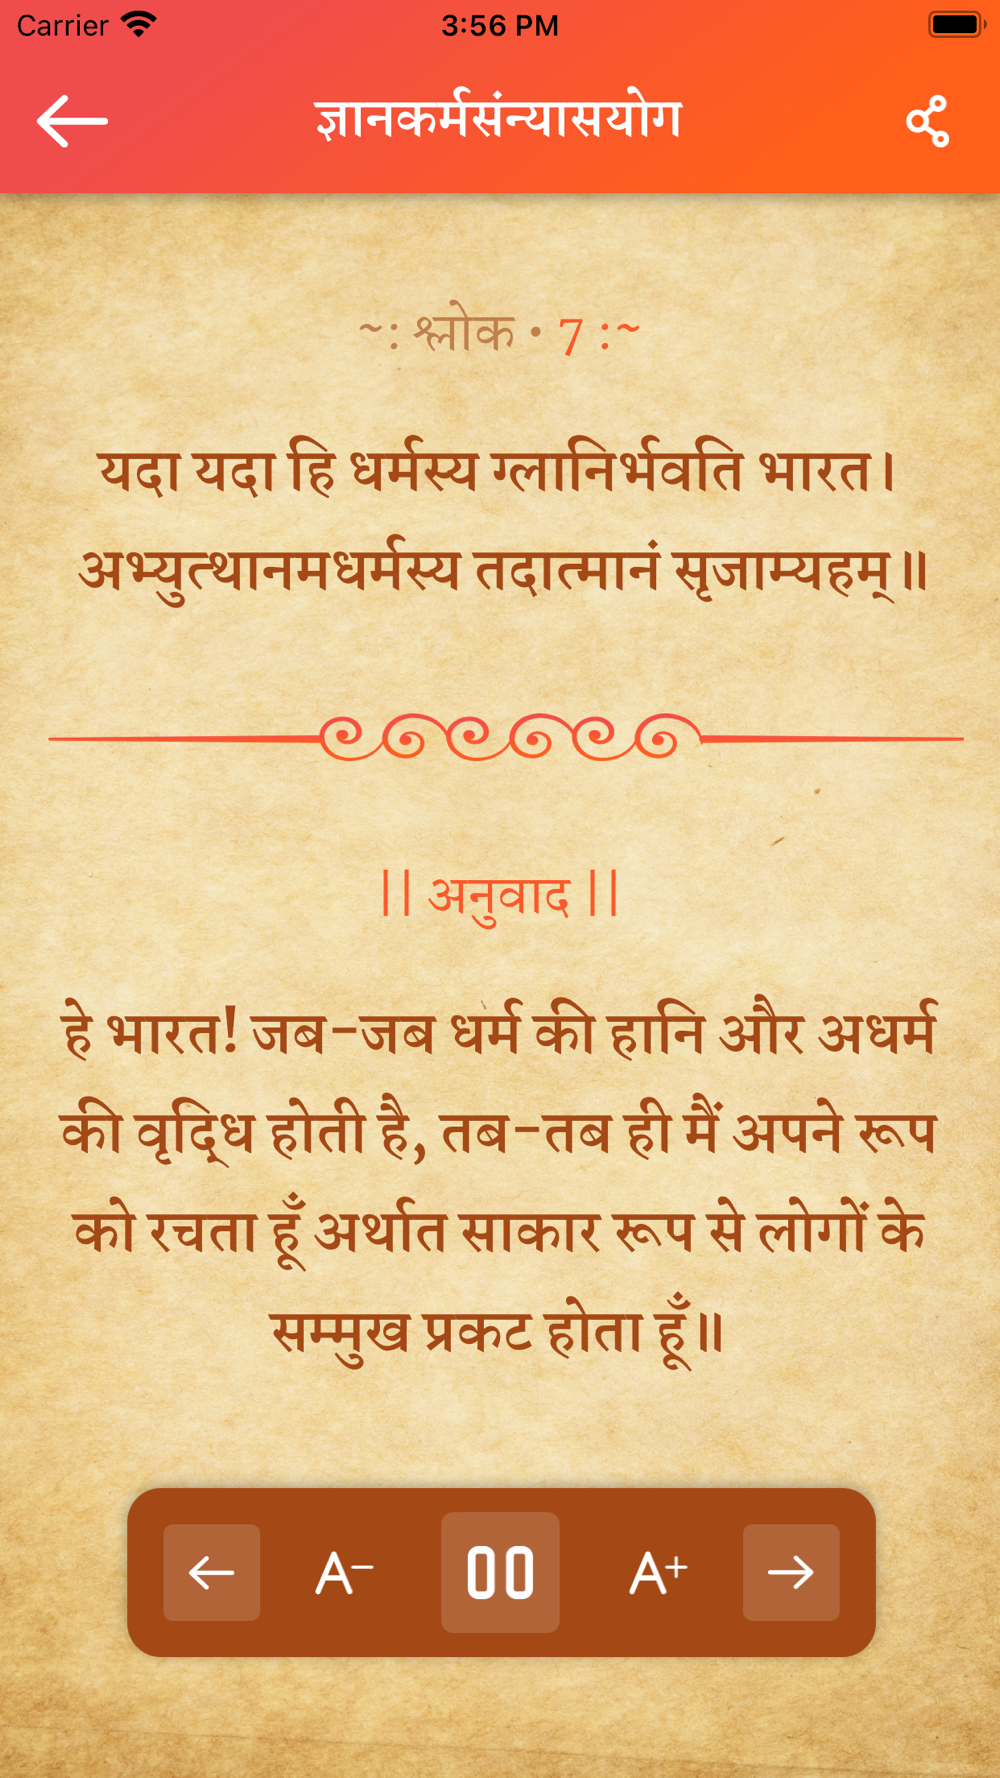 Carrier 3:56 PM
ज्ञानकर्मसंन्यासयोग
~: श्लोक • 7 :~
यदा यदा हि धर्मस्य ग्लानिर्भवति भारत।
अभ्युत्थानमधर्मस्य तदात्मानं सृजाम्यहम्॥
|| अनुवाद ||
हे भारत! जब-जब धर्म की हानि और अधर्म
की वृद्धि होती है, तब-तब ही मैं अपने रूप
को रचता हूँ अर्थात साकार रूप से लोगों के
सम्मुख प्रकट होता हूँ॥
A- A+